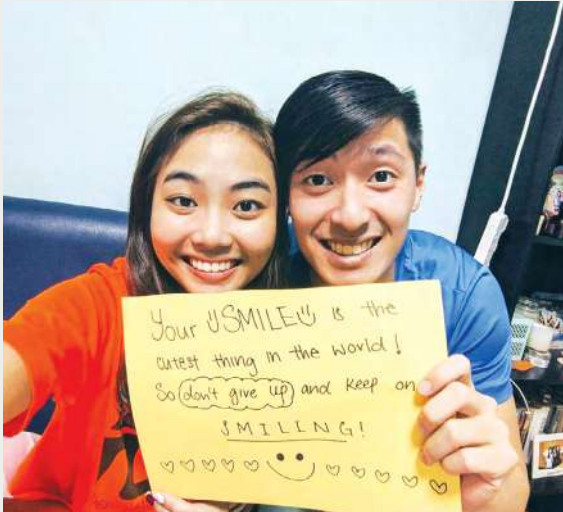 Your SMILE is the
cutest thing in the world!
So don't give up and keep on
SMILING!